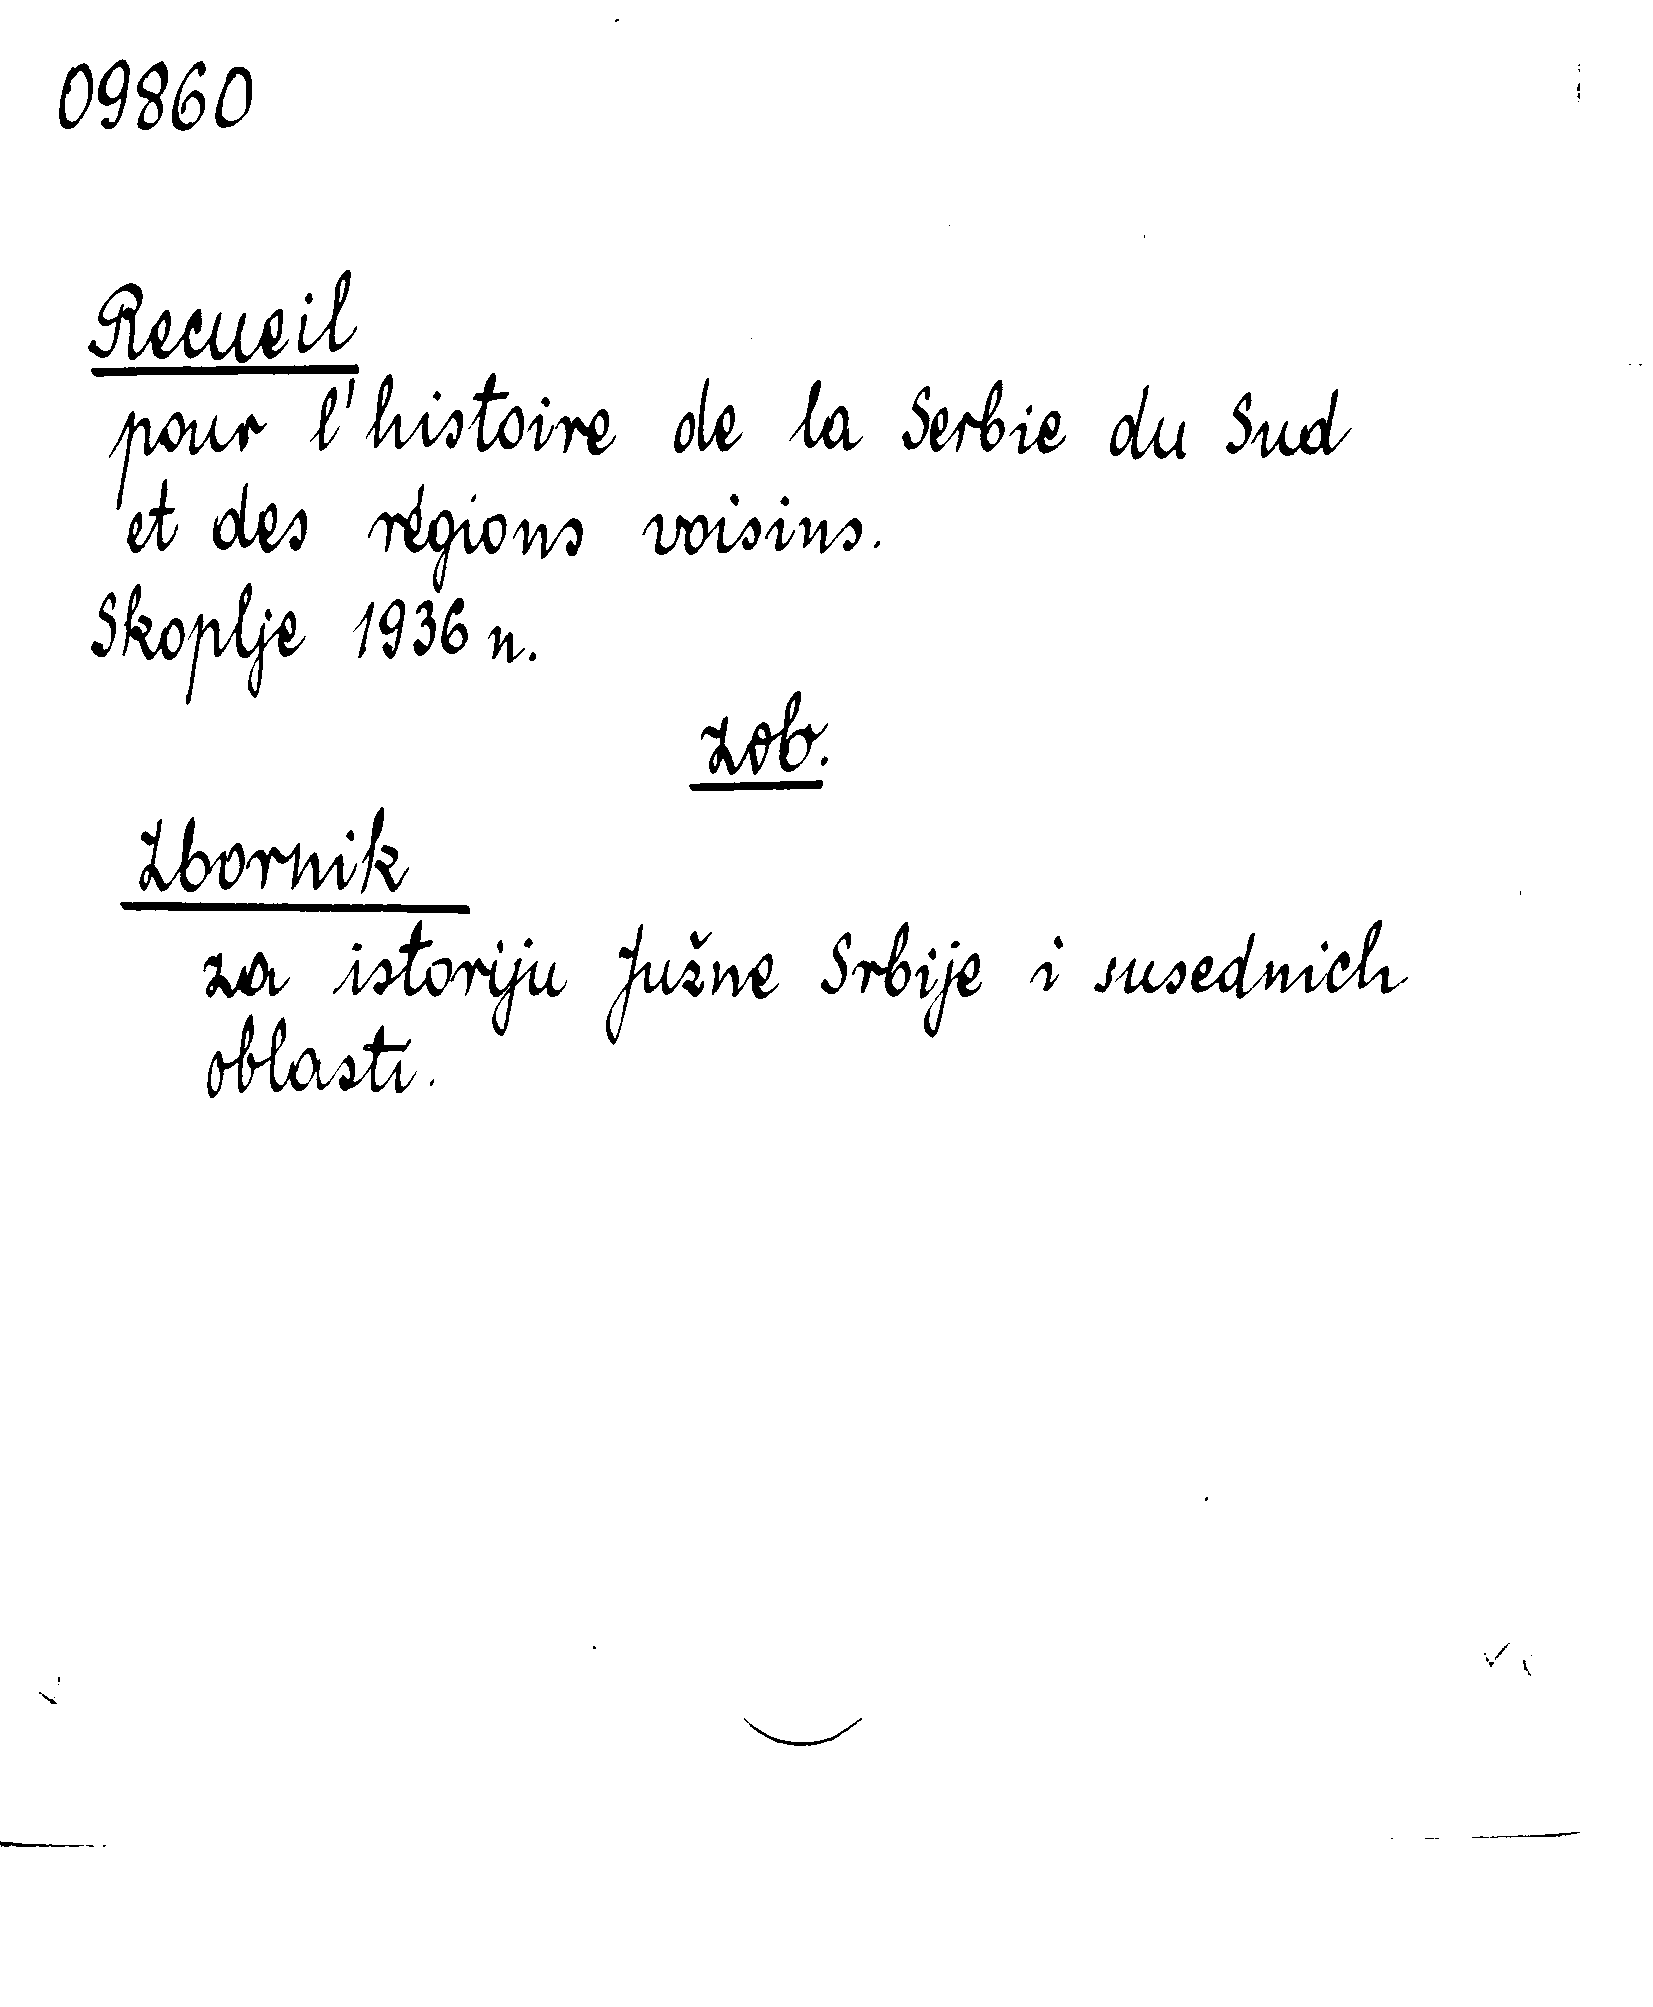 09860
Recueil
pour l'histoire de la Serbie du Sud
et des régions voisins.
Skoplje 1936 n.
zob.
Zbornik
za istoriju Južne Srbije i susednich
oblasti.